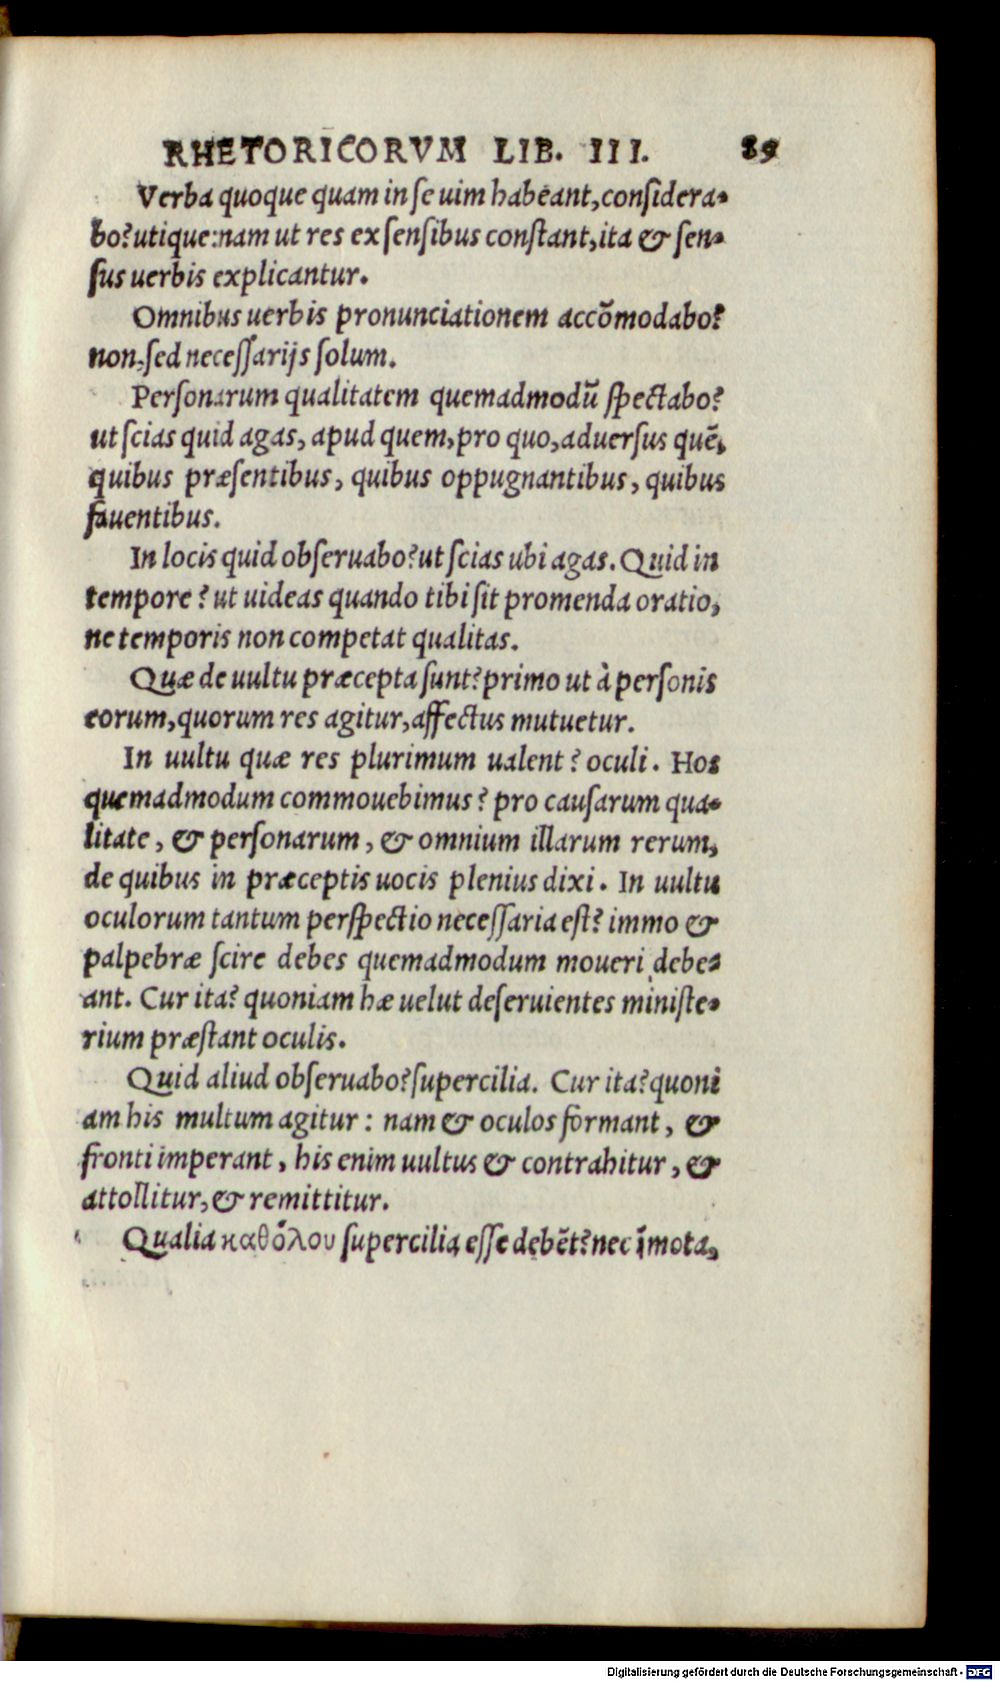 RHETORICORVM LIB. III. 89
Verba quoque quam in se uim habeant, considera-
bo? utique: nam ut res ex sensibus constant, ita & sen-
sus uerbis explicantur.
Omnibus uerbis pronunciationem accōmodabo?
non, sed necessarijs solum.
Personarum qualitatem quemadmodū spectabo?
ut scias quid agas, apud quem, pro quo, aduersus quē,
quibus præsentibus, quibus oppugnantibus, quibus
fauentibus.
In locis quid obseruabo? ut scias ubi agas. Quid in
tempore? ut uideas quando tibi sit promenda oratio,
ne temporis non competat qualitas.
Quæ de uultu præcepta sunt? primo ut à personis
eorum, quorum res agitur, affectus mutuetur.
In uultu quæ res plurimum ualent? oculi. Hos
quemadmodum commouebimus? pro causarum qua-
litate, & personarum, & omnium illarum rerum,
de quibus in præceptis uocis plenius dixi. In uultu
oculorum tantum perspectio necessaria est? immo &
palpebræ scire debes quemadmodum moueri debe-
ant. Cur ita? quoniam hæ uelut deseruientes ministe-
rium præstant oculis.
Quid aliud obseruabo? supercilia. Cur ita? quoni
am his multum agitur: nam & oculos formant, &
fronti imperant, his enim uultus & contrahitur, &
attollitur, & remittitur.
Qualia καθόλου supercilia esse debēt? nec īmota,
Digitalisierung gefördert durch die Deutsche Forschungsgemeinschaft - DFG